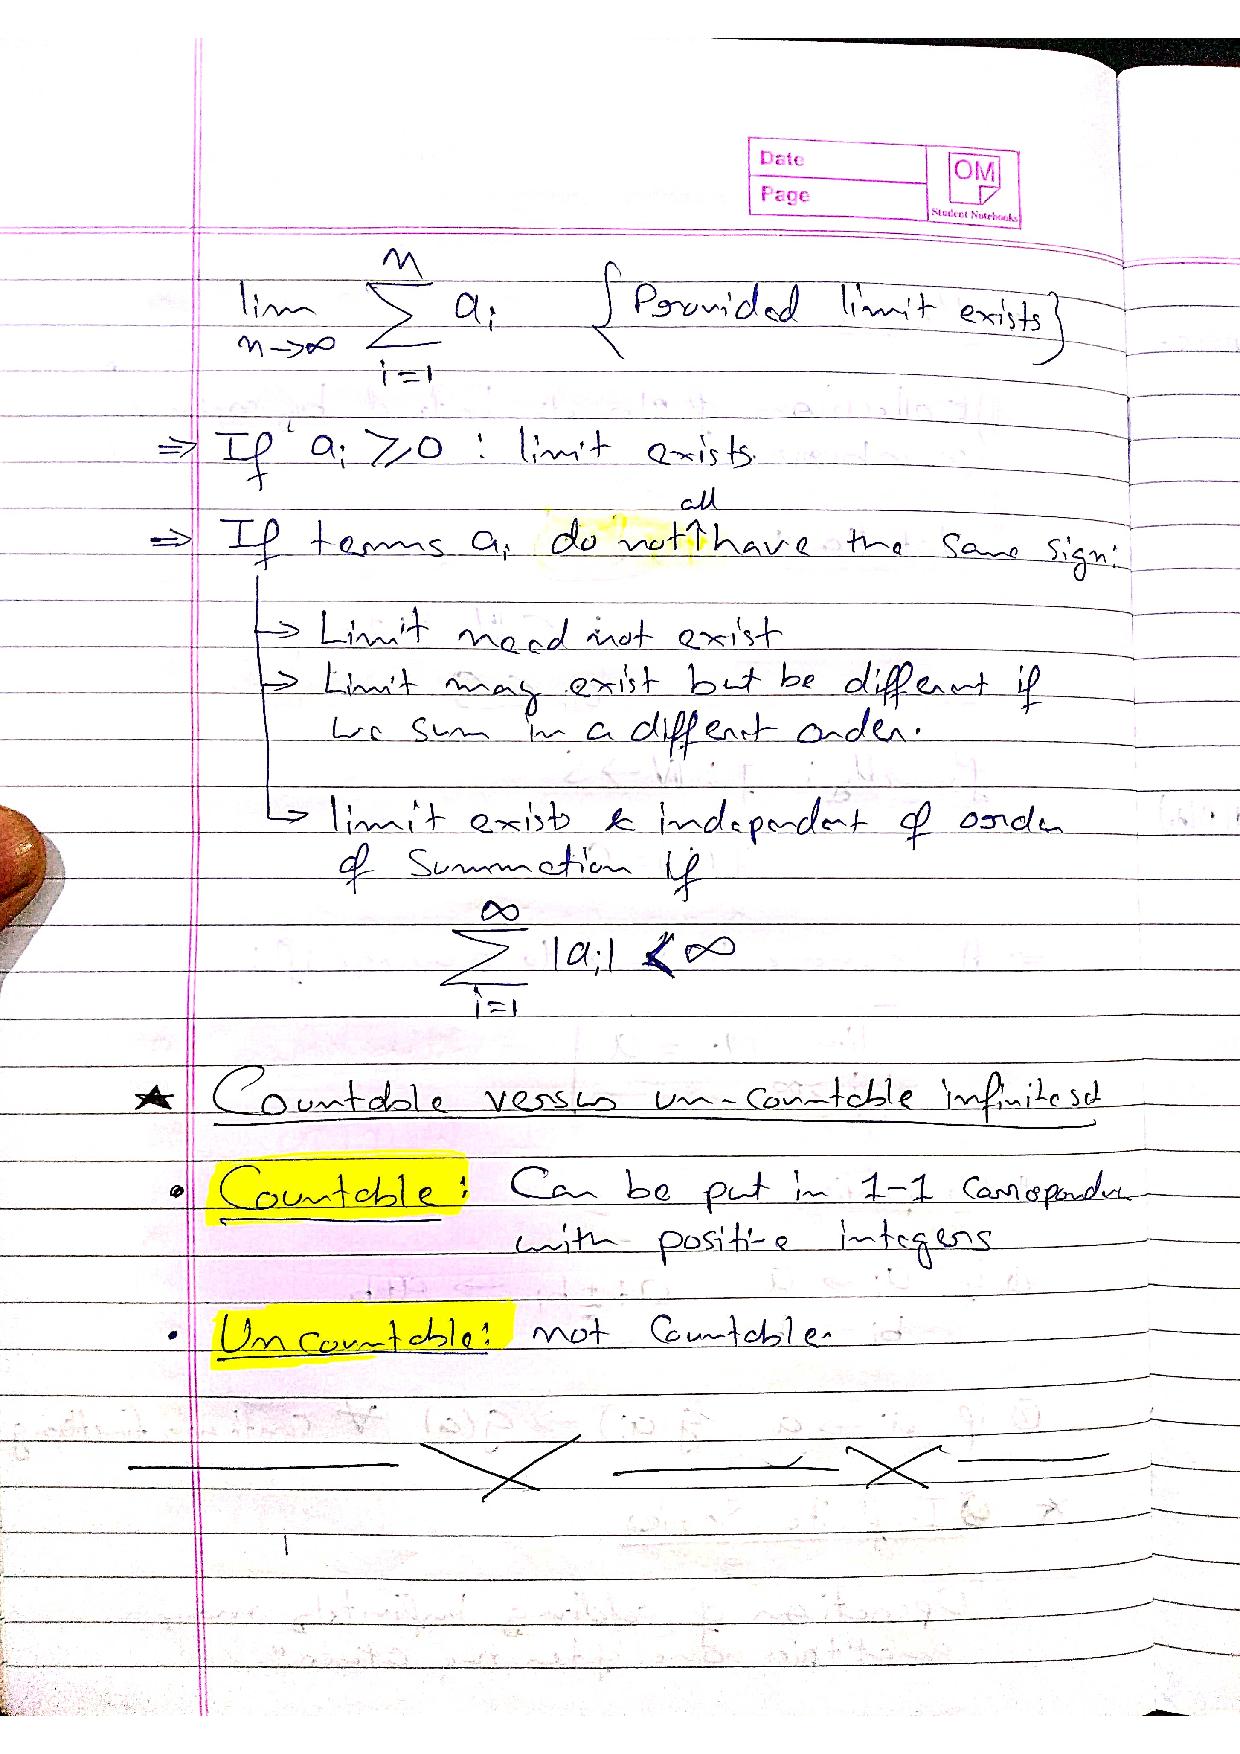 Date
Page
OM
Student Notebooks
lim n→∞ n Σ i=1 aᵢ {Provided limit exists}
⇒ If aᵢ ≥ 0 : limit exists.
all
⇒ If terms aᵢ do not ↑ have the same sign:
→ Limit need not exist
→ Limit may exist but be different if
we sum in a different order.
→ limit exists & independent of order
of summation if
∞ Σ i=1 |aᵢ| < ∞
★ Countable versus un-countable infinite set
• Countable: Can be put in 1-1
with positive integers
• Uncountable: not Countable.